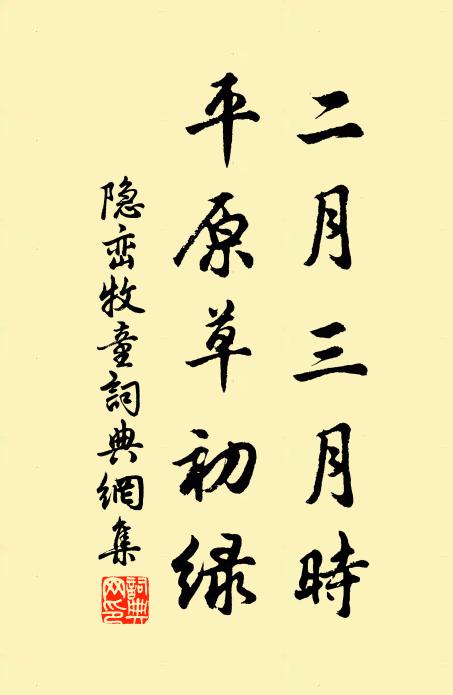 二月三月時
平原草初緑
隐峦牧童詞典網集
詞典網印